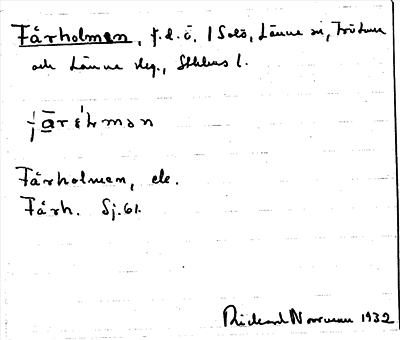 Fårholmen, f.d. ö, i Solö, Länna sn, Frötuna
och Länna slg., Sthlms l.
Fårholmen, ek.
Fårh. Sj.61.
Rickard Norrman 1932